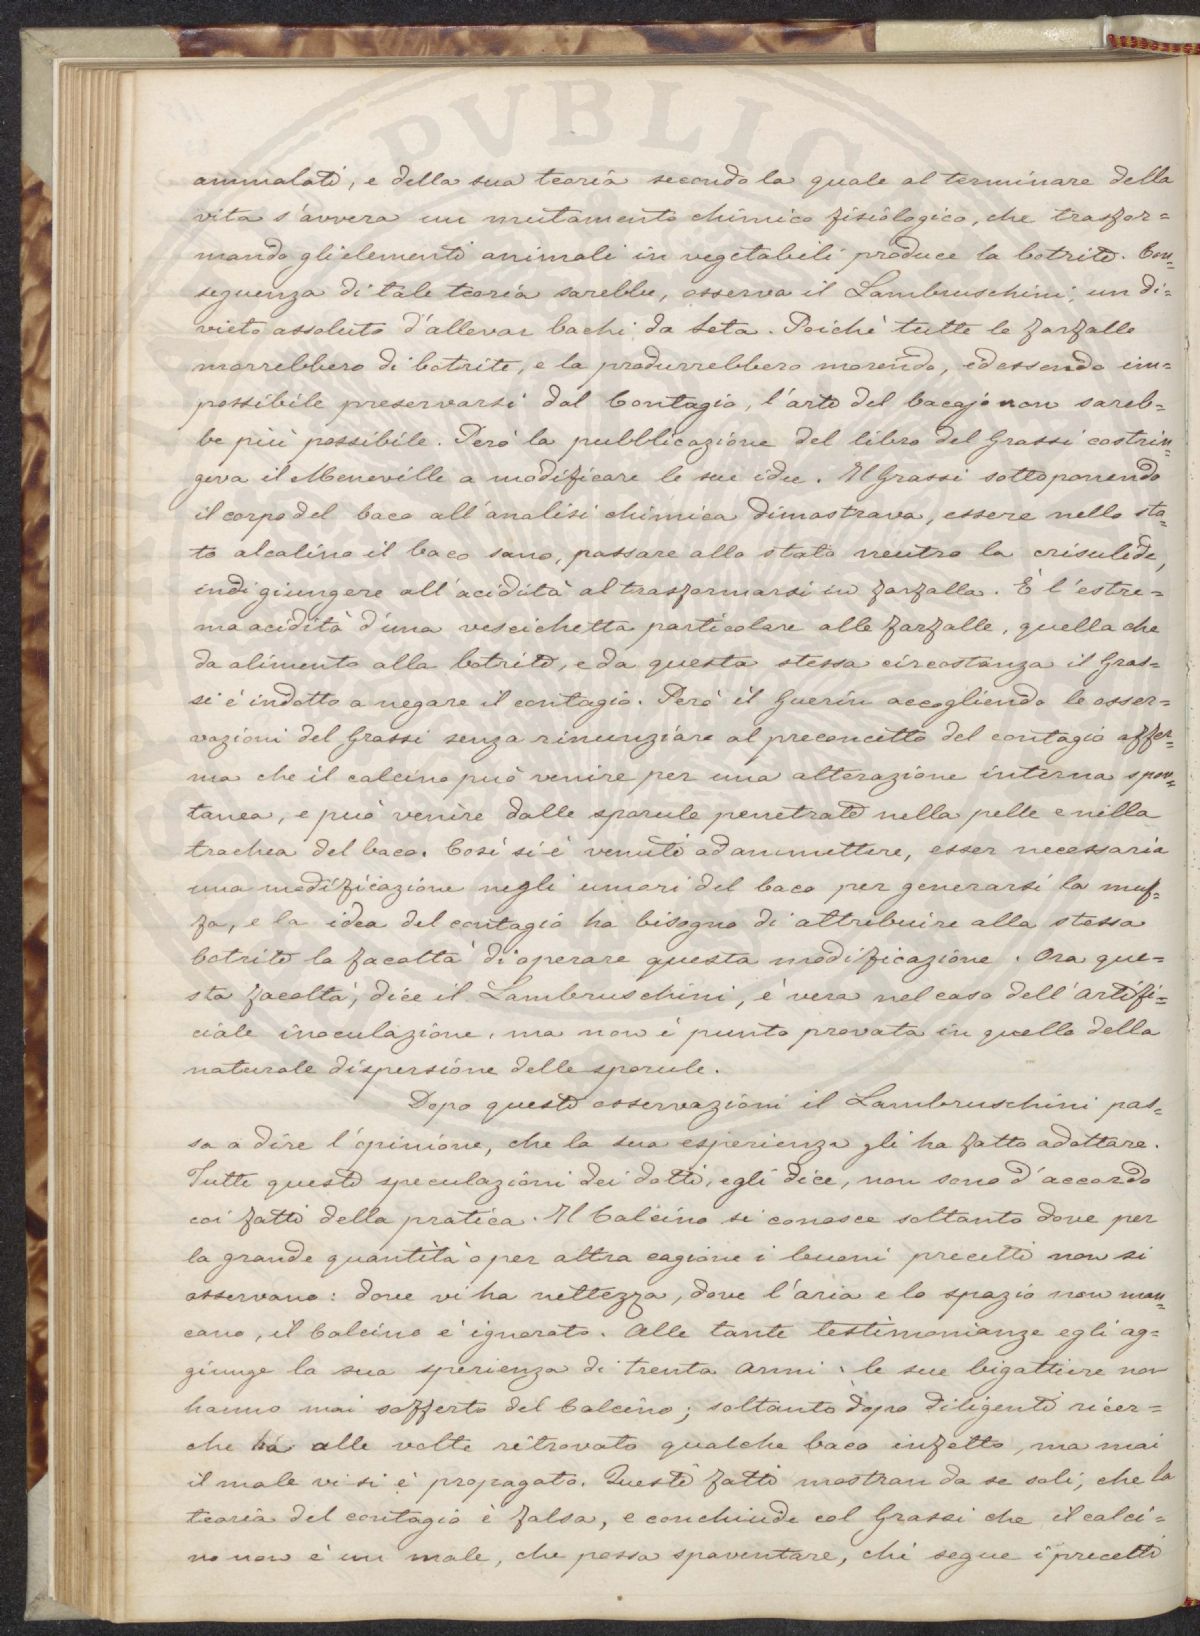 PVBLIC
ammalati, e della sua teoria secondo la quale al terminare della
vita s'avvera un mutamento chimico fisiologico, che trasfor=
mando gli elementi animali in vegetabili produce la botrite. Con=
seguenza di tale teoria sarebbe, osserva il Lambruschini, un di=
vieto assoluto d'allevar bachi da seta. Poichè tutte le farfalle
morrebbero di botrite, e la produrrebbero morendo, ed essendo im=
possibile preservarsi dal Contagio, l'arte del bacajo non sareb=
be più possibile. Però la pubblicazione del libro del Grassi costrin=
geva il Meneville a modificare le sue idee. Il Grassi sottoponendo
il corpo del baco all'analisi chimica dimostrava, essere nello sta=
to alcalino il baco sano, passare allo stato neutro la crisalide,
indi giungere all'acidità al trasformarsi in farfalla. È l'estre=
ma acidità d'una vescichetta particolare alle farfalle, quella che
da alimento alla botrite, e da questa stessa circostanza il Gras=
si è indotto a negare il contagio. Però il Guerin accogliendo le osser=
vazioni del Grassi senza rinunziare al preconcetto del contagio affer=
ma che il calcino può venire per una alterazione interna spon=
tanea, e può venire dalle sporule penetrate nella pelle e nella
trachea del baco. Così si è venuti ad ammettere, esser necessaria
una modificazione negli umori del baco per generarsi la muf=
fa, e la idea del contagio ha bisogno di attribuire alla stessa
botrite la facoltà di operare questa modificazione. Ora que=
sta facoltà, dice il Lambruschini, è vera nel caso dell'artifi=
ciale inoculazione, ma non è punto provata in quello della
naturale dispersione delle sporule.
Dopo queste osservazioni il Lambruschini pas=
sa a dire l'opinione, che la sua esperienza gli ha fatto adottare.
Tutte queste speculazioni dei dotti, egli dice, non sono d'accordo
coi fatti della pratica. Il Calcino si conosce soltanto dove per
la grande quantità o per altra cagione i buoni precetti non si
osservano: dove vi ha nettezza, dove l'aria e lo spazio non man=
cano, il Calcino è ignorato. Alle tante testimonianze egli ag=
giunge la sua sperienza di trenta anni: le sue bigattiere non
hanno mai sofferto del Calcino; soltanto dopo diligenti ricer=
che ha alle volte ritrovato qualche baco infetto, ma mai
il male vi si è propagato. Questi fatti mostran da se soli, che la
teoria del contagio è falsa, e conchiude col Grassi che il calci=
no non è un male, che possa spaventare, chi segue i precetti